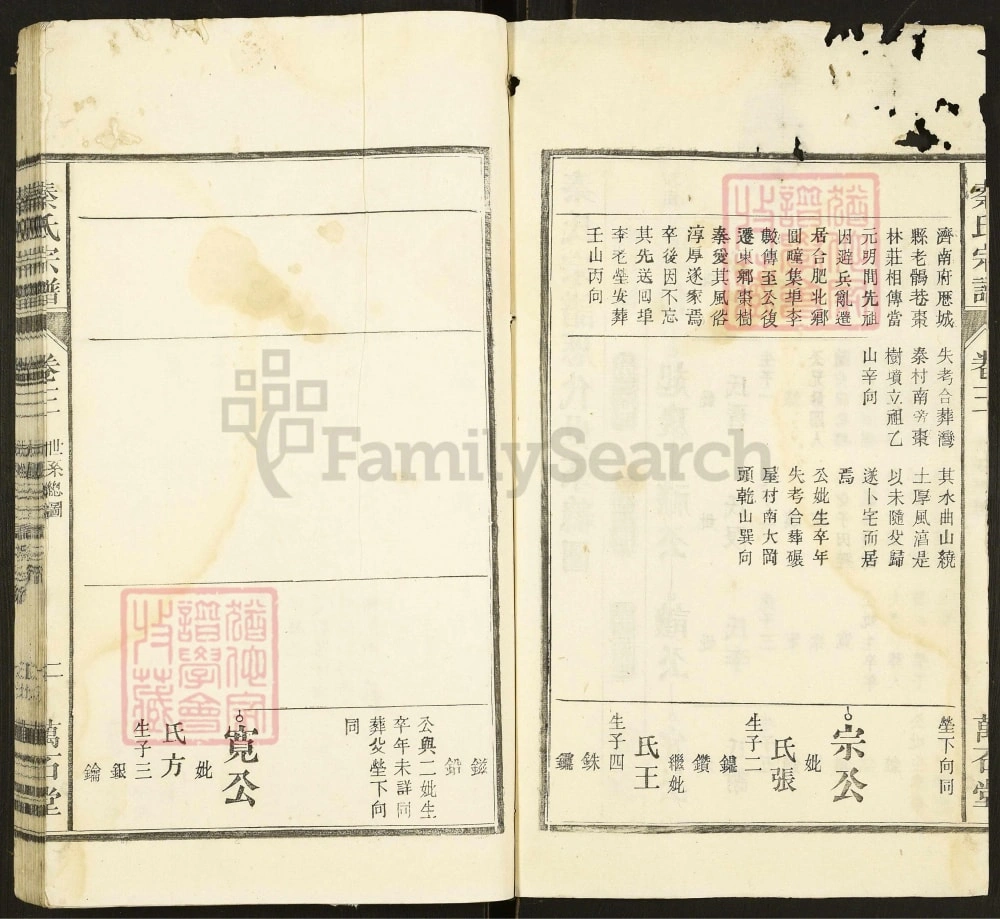 秦氏宗譜
卷三
萬石堂
濟南府厯城
縣老鸛巷棗
林莊相傳當
元明間先祖
因避兵亂遷
居合肥北鄉
圓疃集埠李
數傳至公後
遷東鄉棗樹
秦愛其風俗
淳厚遂家焉
卒後因不忘
其先送回埠
李老塋安葬
壬山丙向
失考合葬灣
秦村南旁棗
樹墳立祖乙
山辛向
其水曲山繞
土厚風淳是
以未隨父歸
遂卜宅而居
焉
公妣生卒年
失考合葬碾
屋村南大岡
頭乾山巽向
塋下向同
宗公
妣
氏張
生子二
鑽
繼妣
氏王
生子四
銖
鏽
鎡
鉛
公與二妣生
卒年未詳同
葬父塋下向
同
寬公
妣
氏方
生子三
銀
鑰
秦氏宗譜
卷三
世系總圖
二
萬石堂
猶他家
譜學會
收藏
FamilySearch